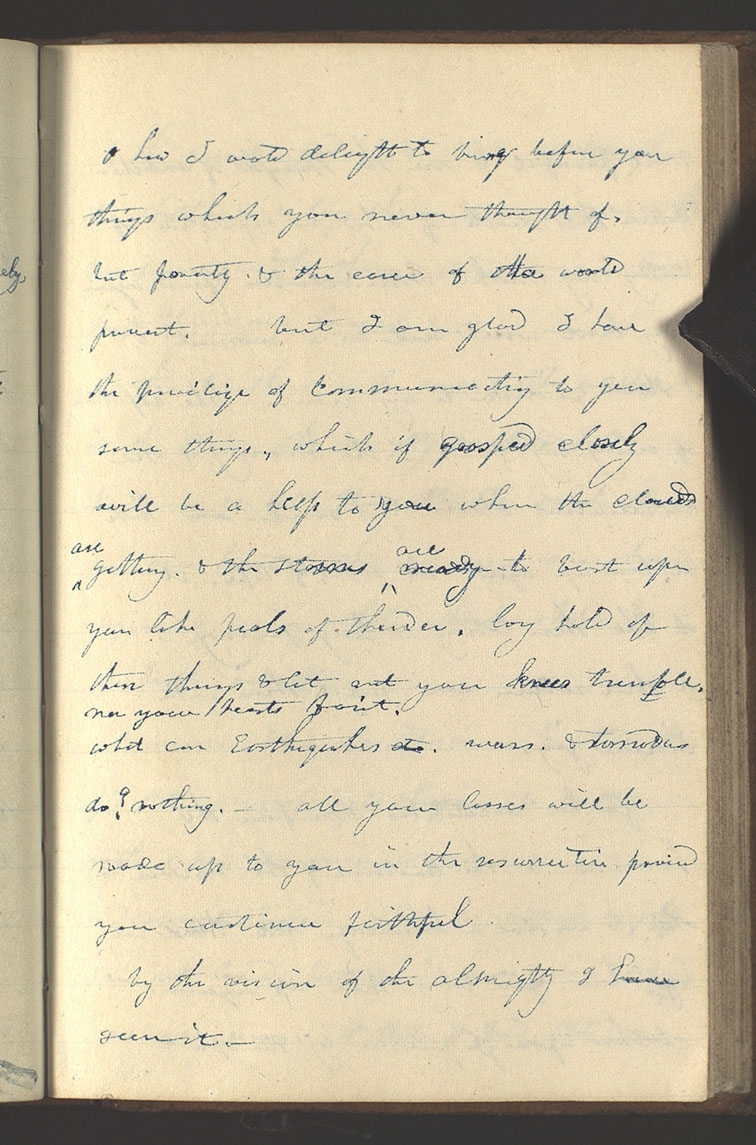 O how I would delight to bring before you
things which you never thought of,
but poverty. & the cares of the world
prevent. but I am glad I have
the privilige of communicating to you
some things, which if grasped closely
will be a help to you when the clouds
are gathering. & the storms are ready to burst upon
you like peals of thunder. lay hold of
these things & let not your knees tremble,
nor your hearts faint.
what can Earthquakes do. wars. & tornados
do? nothing.— all your losses will be
made up to you in the resurrection provid
you continue faithful
by the vision of the almighty I have
seen it.—
ely,